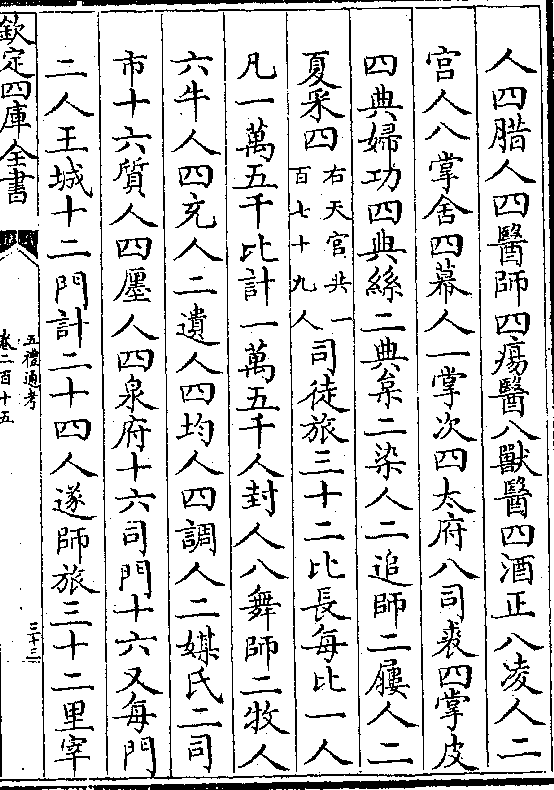 人四腊人四醫師四瘍醫八獸醫四酒正八凌人二
宮人八掌舍四幕人一掌次四太府八司裘四掌皮
四典婦功四典絲二典枲二染人二追師二屨人二
夏采四右天官共一百七十九人司徒旅三十二比長每比一人
凡一萬五千比計一萬五千人封人八舞師二牧人
六牛人四充人二遺人四均人四調人二媒氏二司
市十六質人四廛人四泉府十六司門十六又每門
二人王城十二門計二十四人遂師旅三十二里宰
欽定四庫全書
五禮通考
卷二百十五
三十三